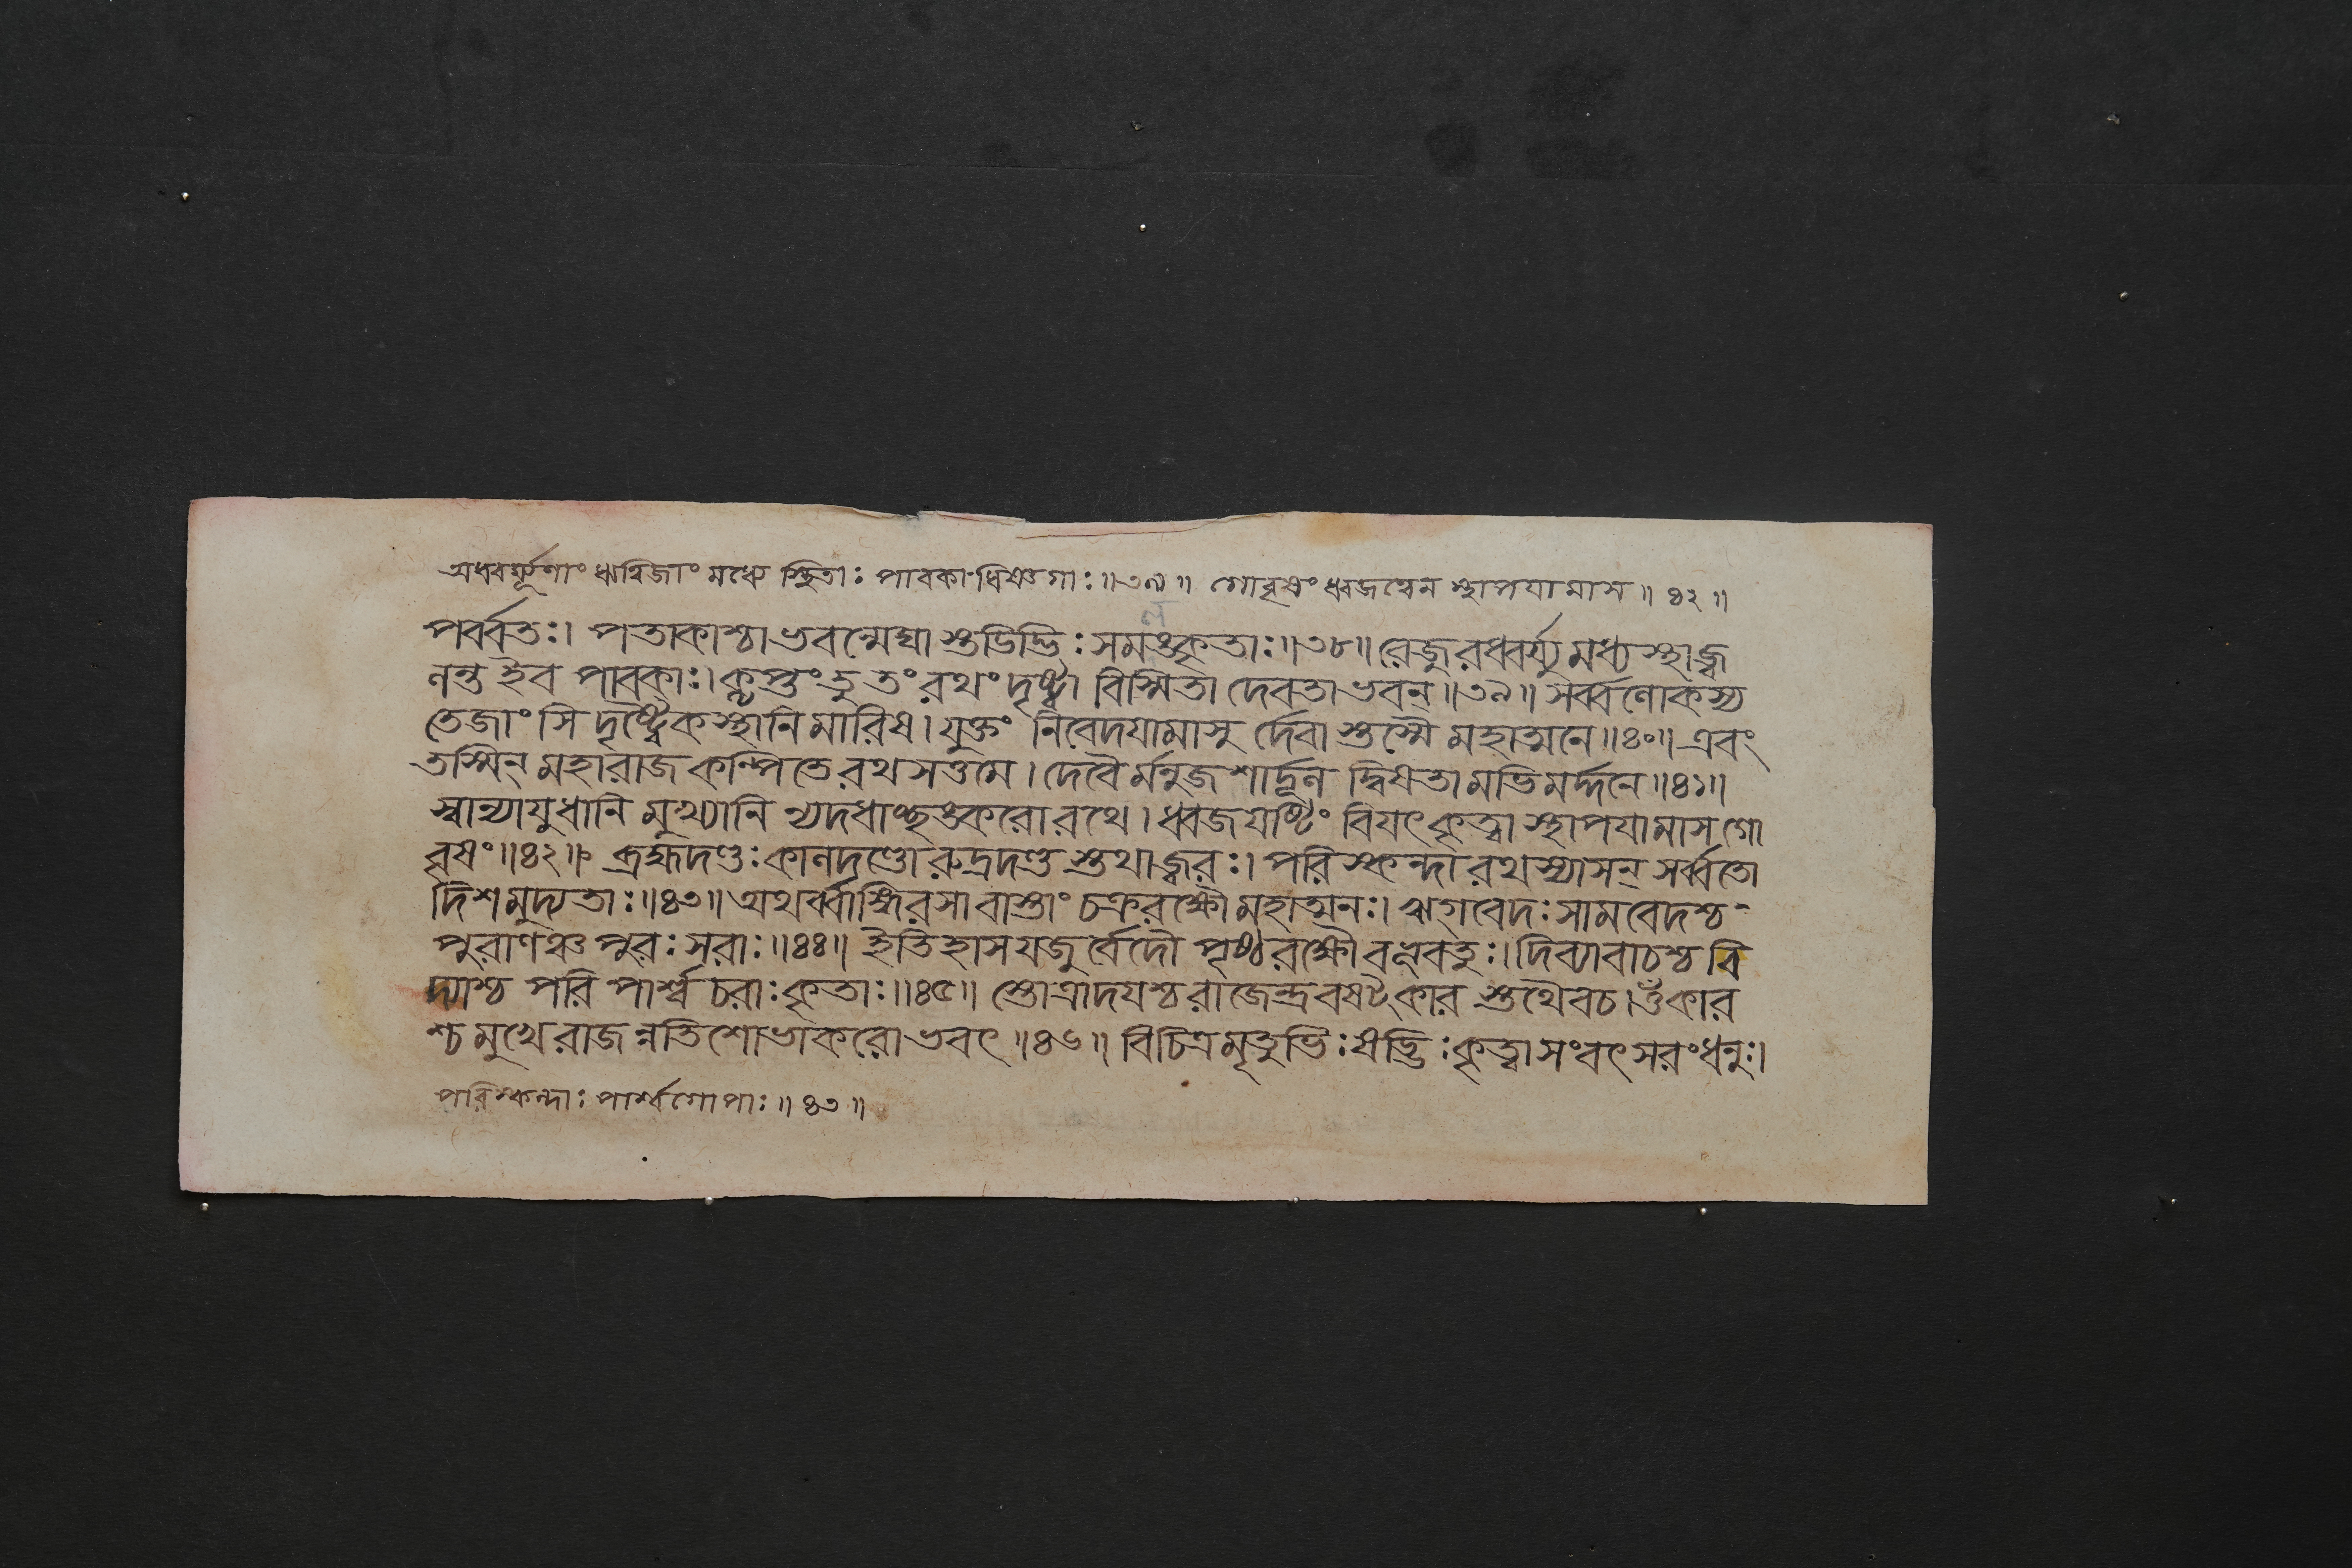 অধ্বর্য্যূণাং ঋত্বিজাং মধ্যে স্থিতাঃ পাবকা ধিষ্ণ্যগাঃ॥৩৯॥ গোবৃষং ধ্বজত্বেন স্থাপযামাস॥৪২॥
পর্ব্বতঃ। পতাকাশ্চাভবন্মেঘাস্তডিদ্ভিঃ সমলঙ্কৃতাঃ॥৩৮॥ রেজুরধ্বর্য্যুমধ্যস্থা জ্ব
লন্ত ইব পাবকাঃ। কৢপ্তং তু তং রথং দৃষ্ট্বা বিস্মিতা দেবতাভবন্॥৩৯॥ সর্ব্বলোকস্য
তেজাংসি দৃষ্ট্বৈকস্থানি মারিষ। যুক্তং নিবেদযামাসুর্দেবাস্তস্মৈ মহাত্মনে॥৪০॥ এবং
তস্মিন্ মহারাজ কল্পিতে রথসত্তমে। দেবৈর্মনুজশার্দ্দূল দ্বিষতামভিমর্দ্দনে॥৪১॥
স্বান্যাযুধানি মুখ্যানি ন্যদধাচ্ছঙ্করো রথে। ধ্বজযষ্টিং বিযৎ কৃত্বা স্থাপযামাস গো
বৃষং॥৪২॥ ব্রহ্মদণ্ডঃ কালদণ্ডো রুদ্রদণ্ডস্তথা জ্বরঃ। পরিস্কন্দা রথস্যাসন্ সর্ব্বতো
দিশমুদ্যতাঃ॥৪৩॥ অথর্ব্বাঙ্গিরসাবাস্তাং চক্ররক্ষৌ মহাত্মনঃ। ঋগ্বেদঃ সামবেদশ্চ
পুরাণঞ্চ পুরঃসরাঃ॥৪৪॥ ইতিহাসযজুর্বেদৌ পৃষ্ঠরক্ষৌ বভূবতুঃ। দিব্যা বাচশ্চ বি
দ্যাশ্চ পরিপার্শ্বচরাঃ কৃতাঃ॥৪৫॥ স্তোত্রাদযশ্চ রাজেন্দ্র বষট্কারস্তথৈব চ। ওঁকার
শ্চ মুখে রাজন্নতিশোভাকরোভবৎ॥৪৬॥ বিচিত্রমৃতুভিঃ ষড্ভিঃ কৃত্বা সংবৎসরং ধনুঃ।
পরিস্কন্দাঃ পার্শ্বগোপাঃ॥৪৩॥